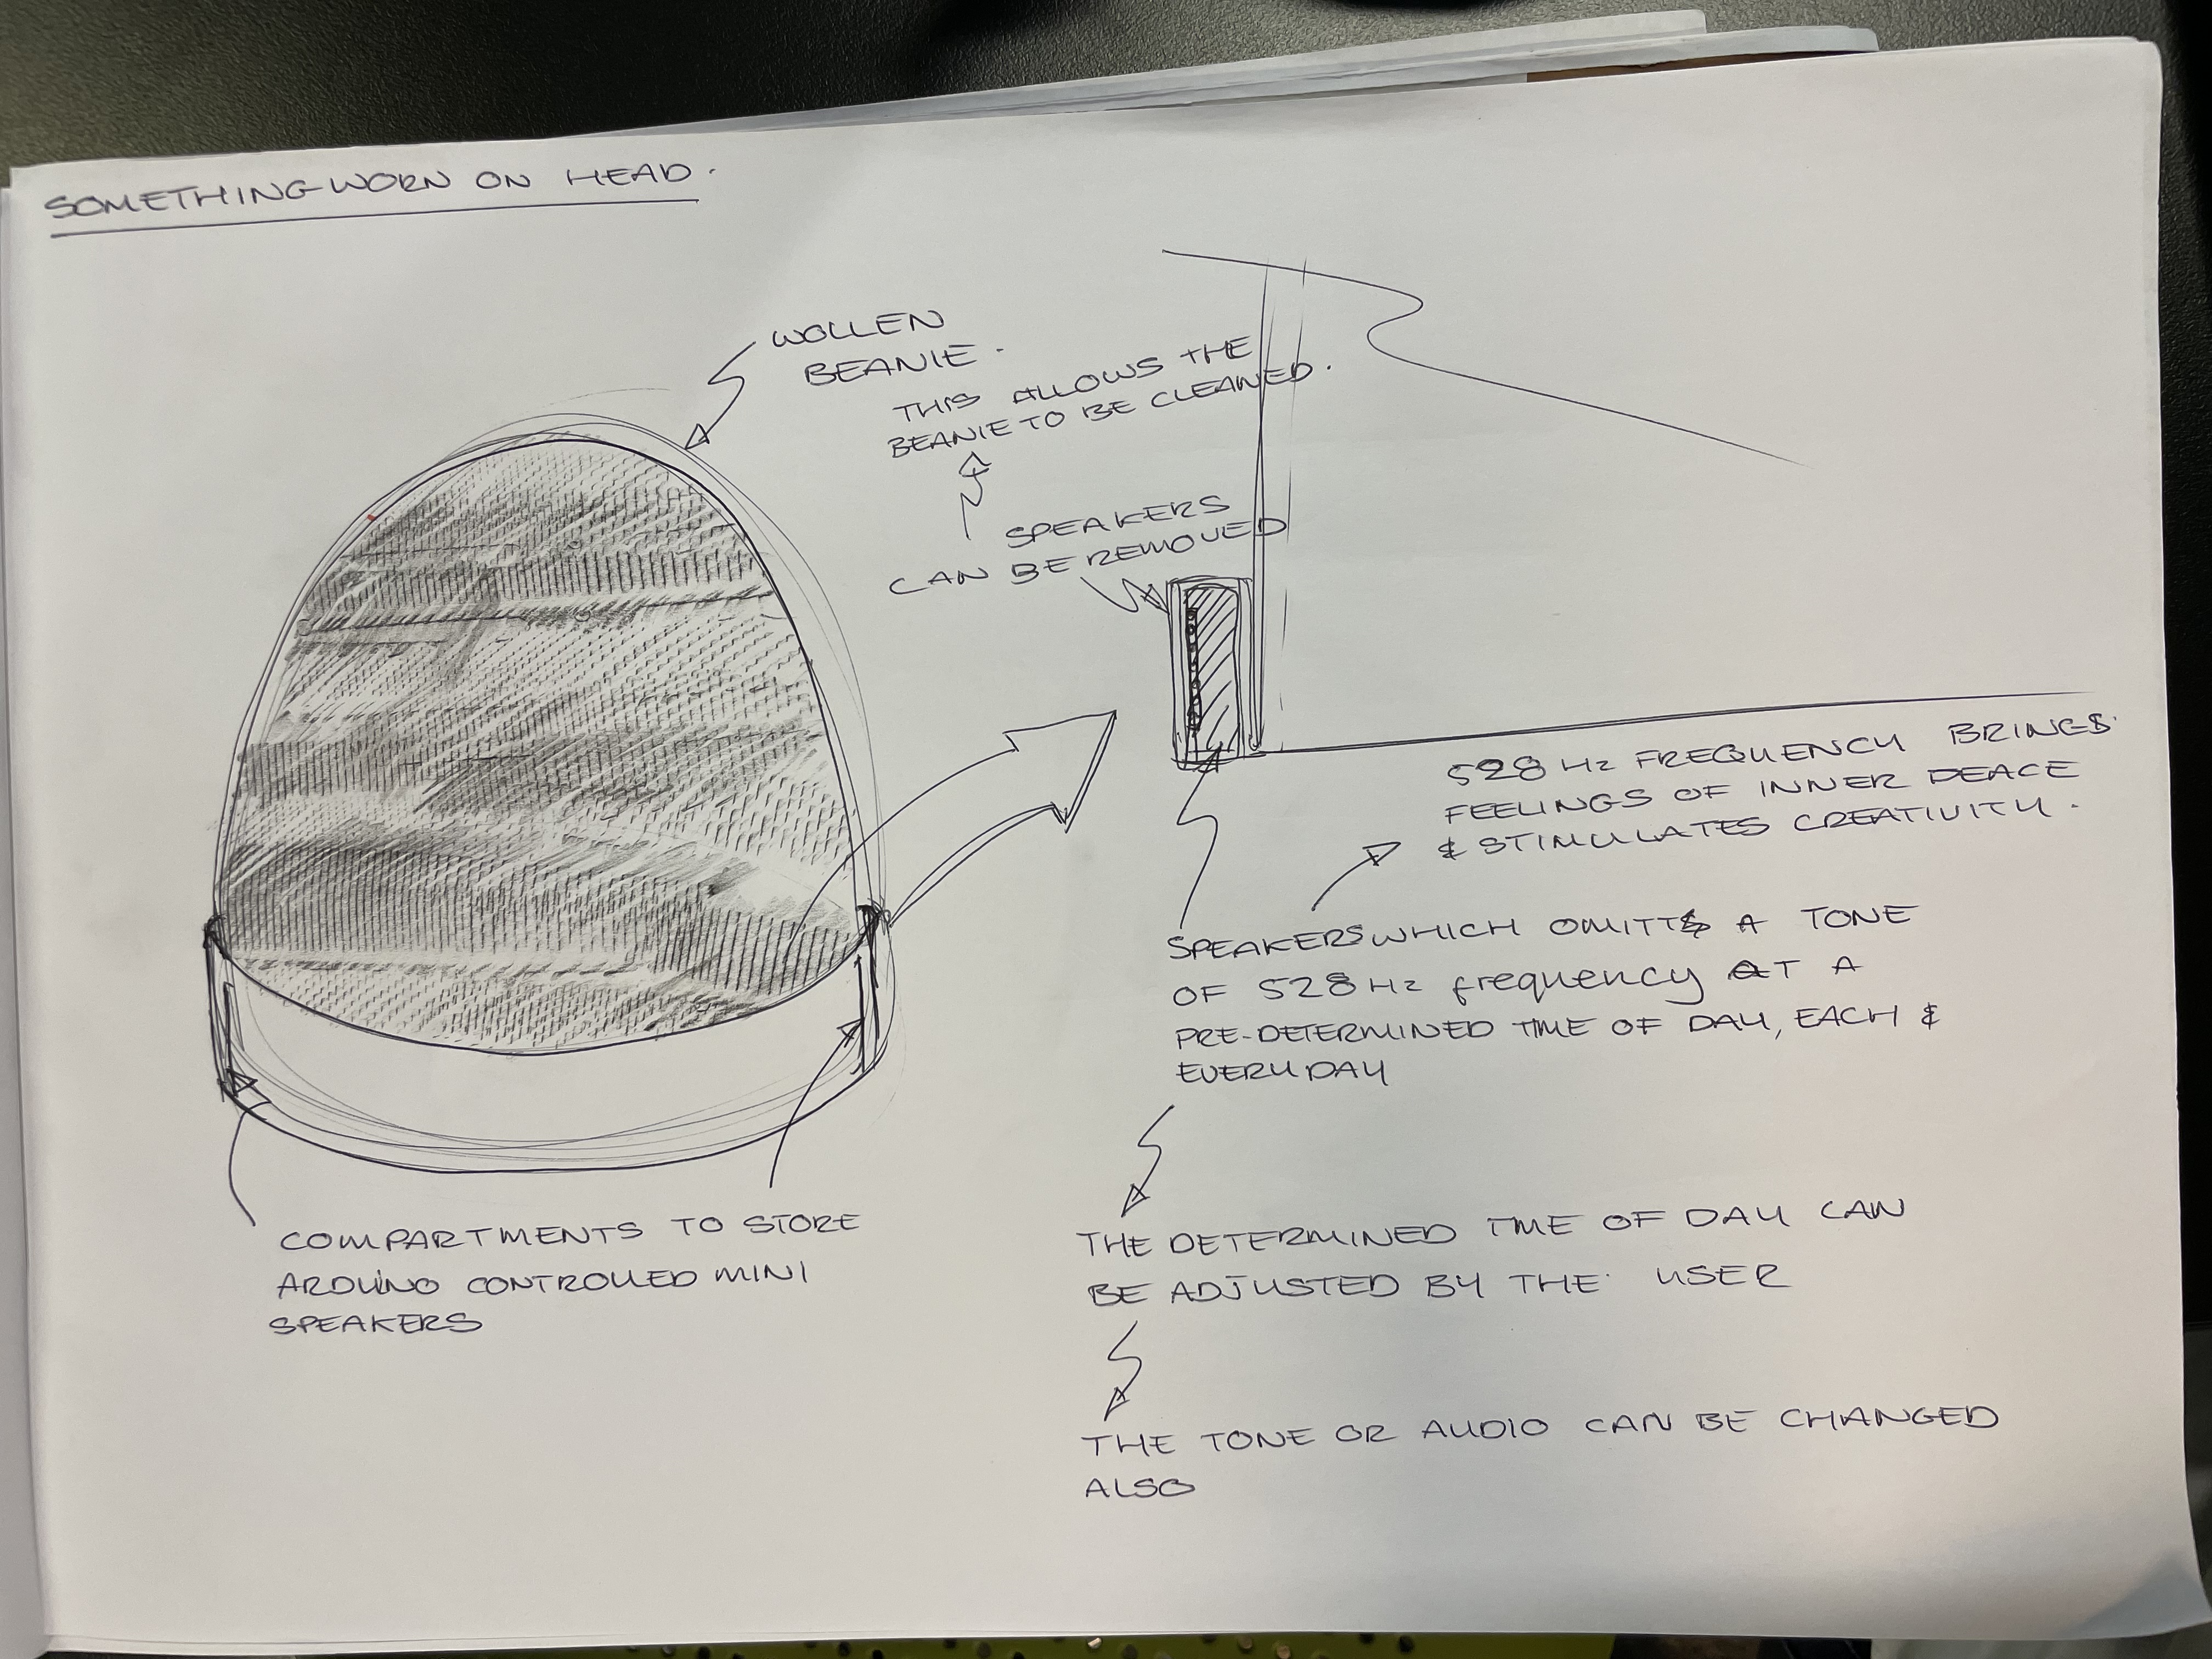 SOMETHING WORN ON HEAD.
WOLLEN
BEANIE.
THIS ALLOWS THE
BEANIE TO BE CLEANED.
SPEAKERS
CAN BE REMOVED
COMPARTMENTS TO STORE
ARDUINO CONTROLLED MINI
SPEAKERS
528 Hz FREQUENCY BRINGS
FEELINGS OF INNER PEACE
& STIMULATES CREATIVITY.
SPEAKERS WHICH OMITS A TONE
OF 528 Hz frequency AT A
PRE-DETERMINED TIME OF DAY, EACH &
EVERY DAY
THE DETERMINED TIME OF DAY CAN
BE ADJUSTED BY THE USER
THE TONE OR AUDIO CAN BE CHANGED
ALSO